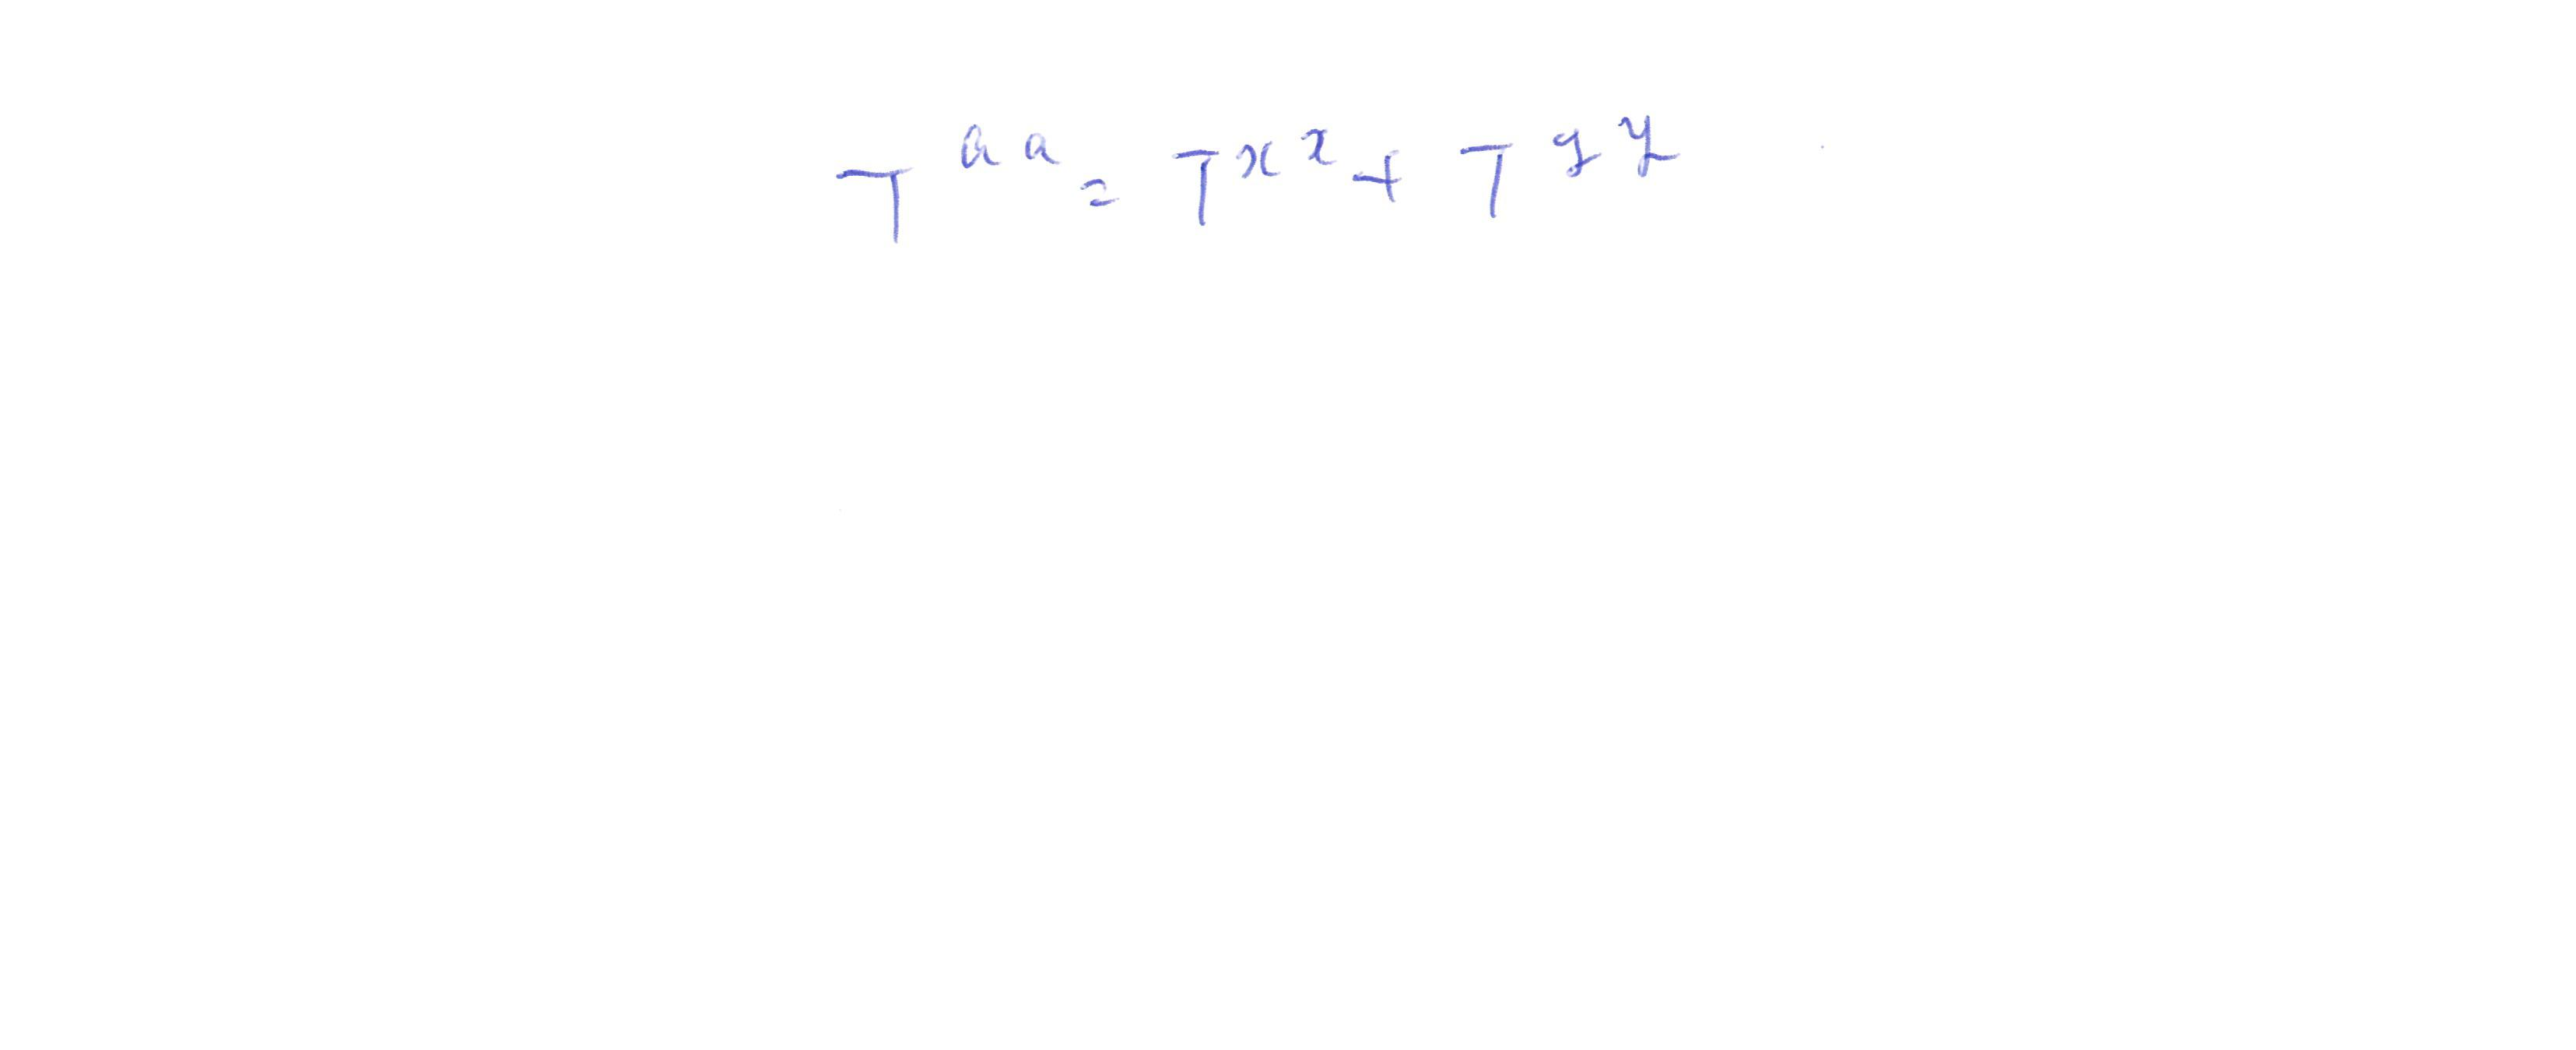 T^{aa} = T^{xx} + T^{yy}